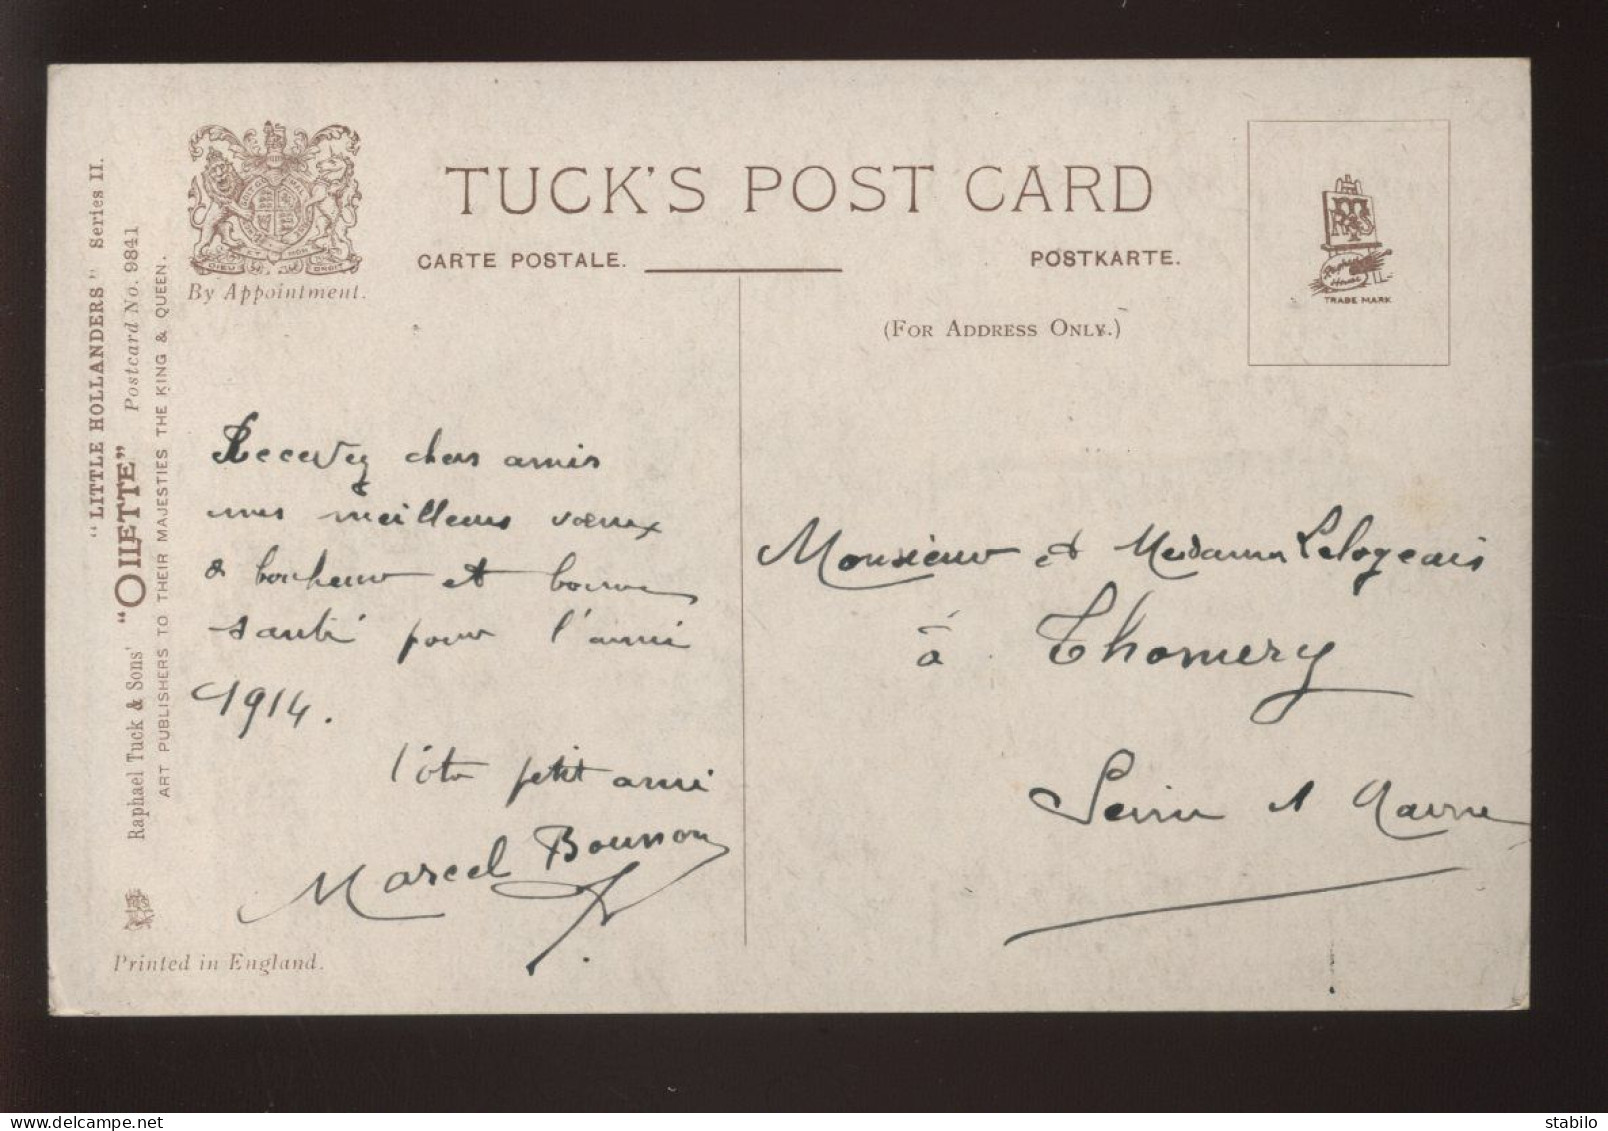 "LITTLE HOLLANDERS" Series II.
Raphael Tuck & Sons' "OILETTE" Postcard No. 9841
ART PUBLISHERS TO THEIR MAJESTIES THE KING & QUEEN.
By Appointment.
DIEU ET MON DROIT
TUCK'S POST CARD
CARTE POSTALE.
POSTKARTE.
(FOR ADDRESS ONLY.)
Raphael House
TRADE MARK
Recevez chers amis
mes meilleurs vœux
de bonheur et bonne
santé pour l'année
1914.
petit ami
Marcel
Monsieur et Madame Lelogeais
à Thomery
Seine et Marne
Printed in England.
www.delcampe.net
stabilo